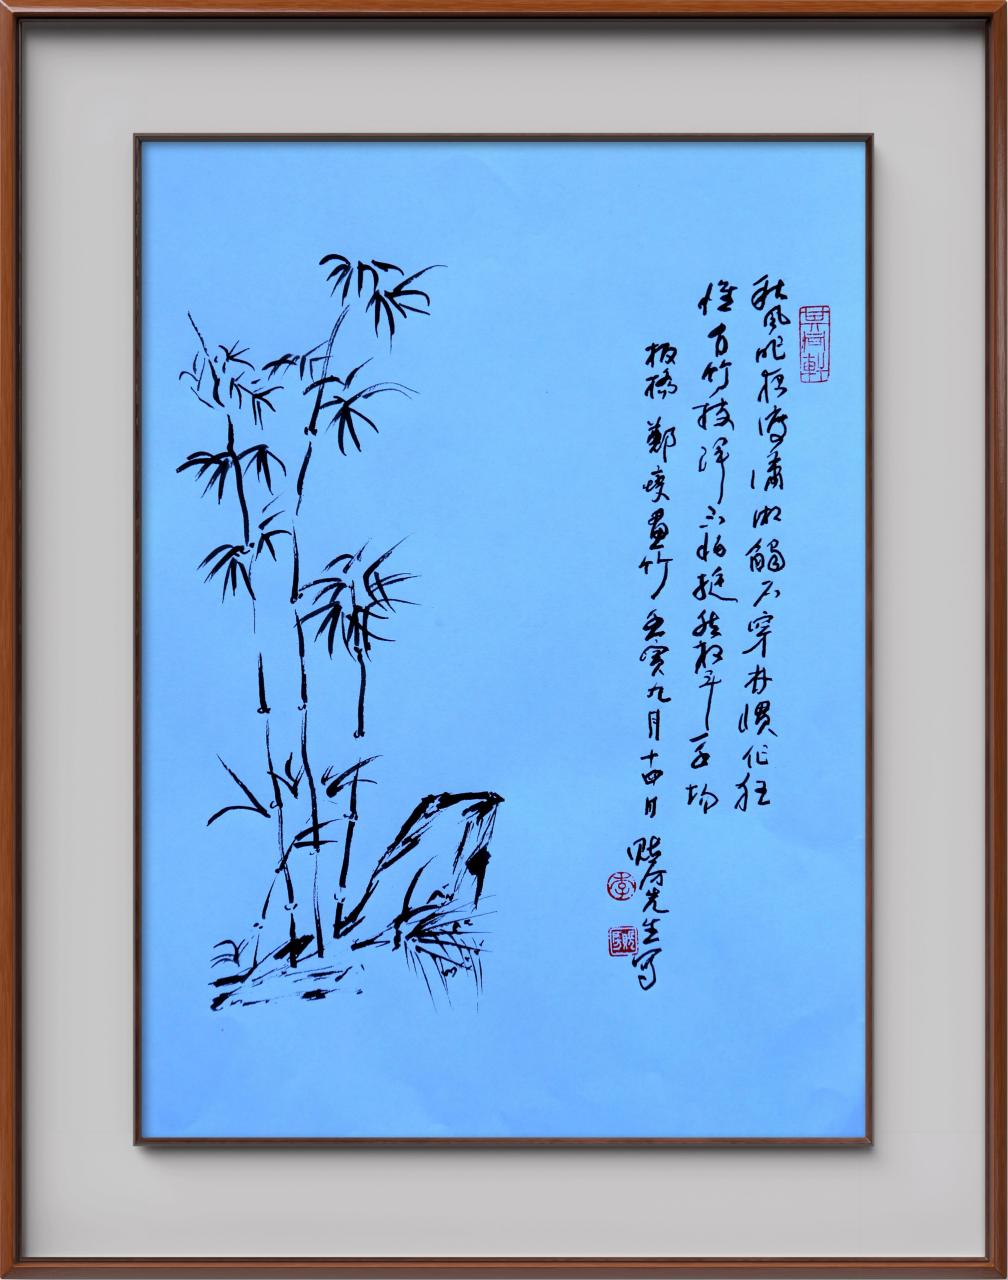 秋風昨夜渡瀟湘觸石穿林慣作狂
惟有竹枝渾不怕挺然相斗一千场
板橋鄭燮畫竹壬寅九月十四日
先生写
李